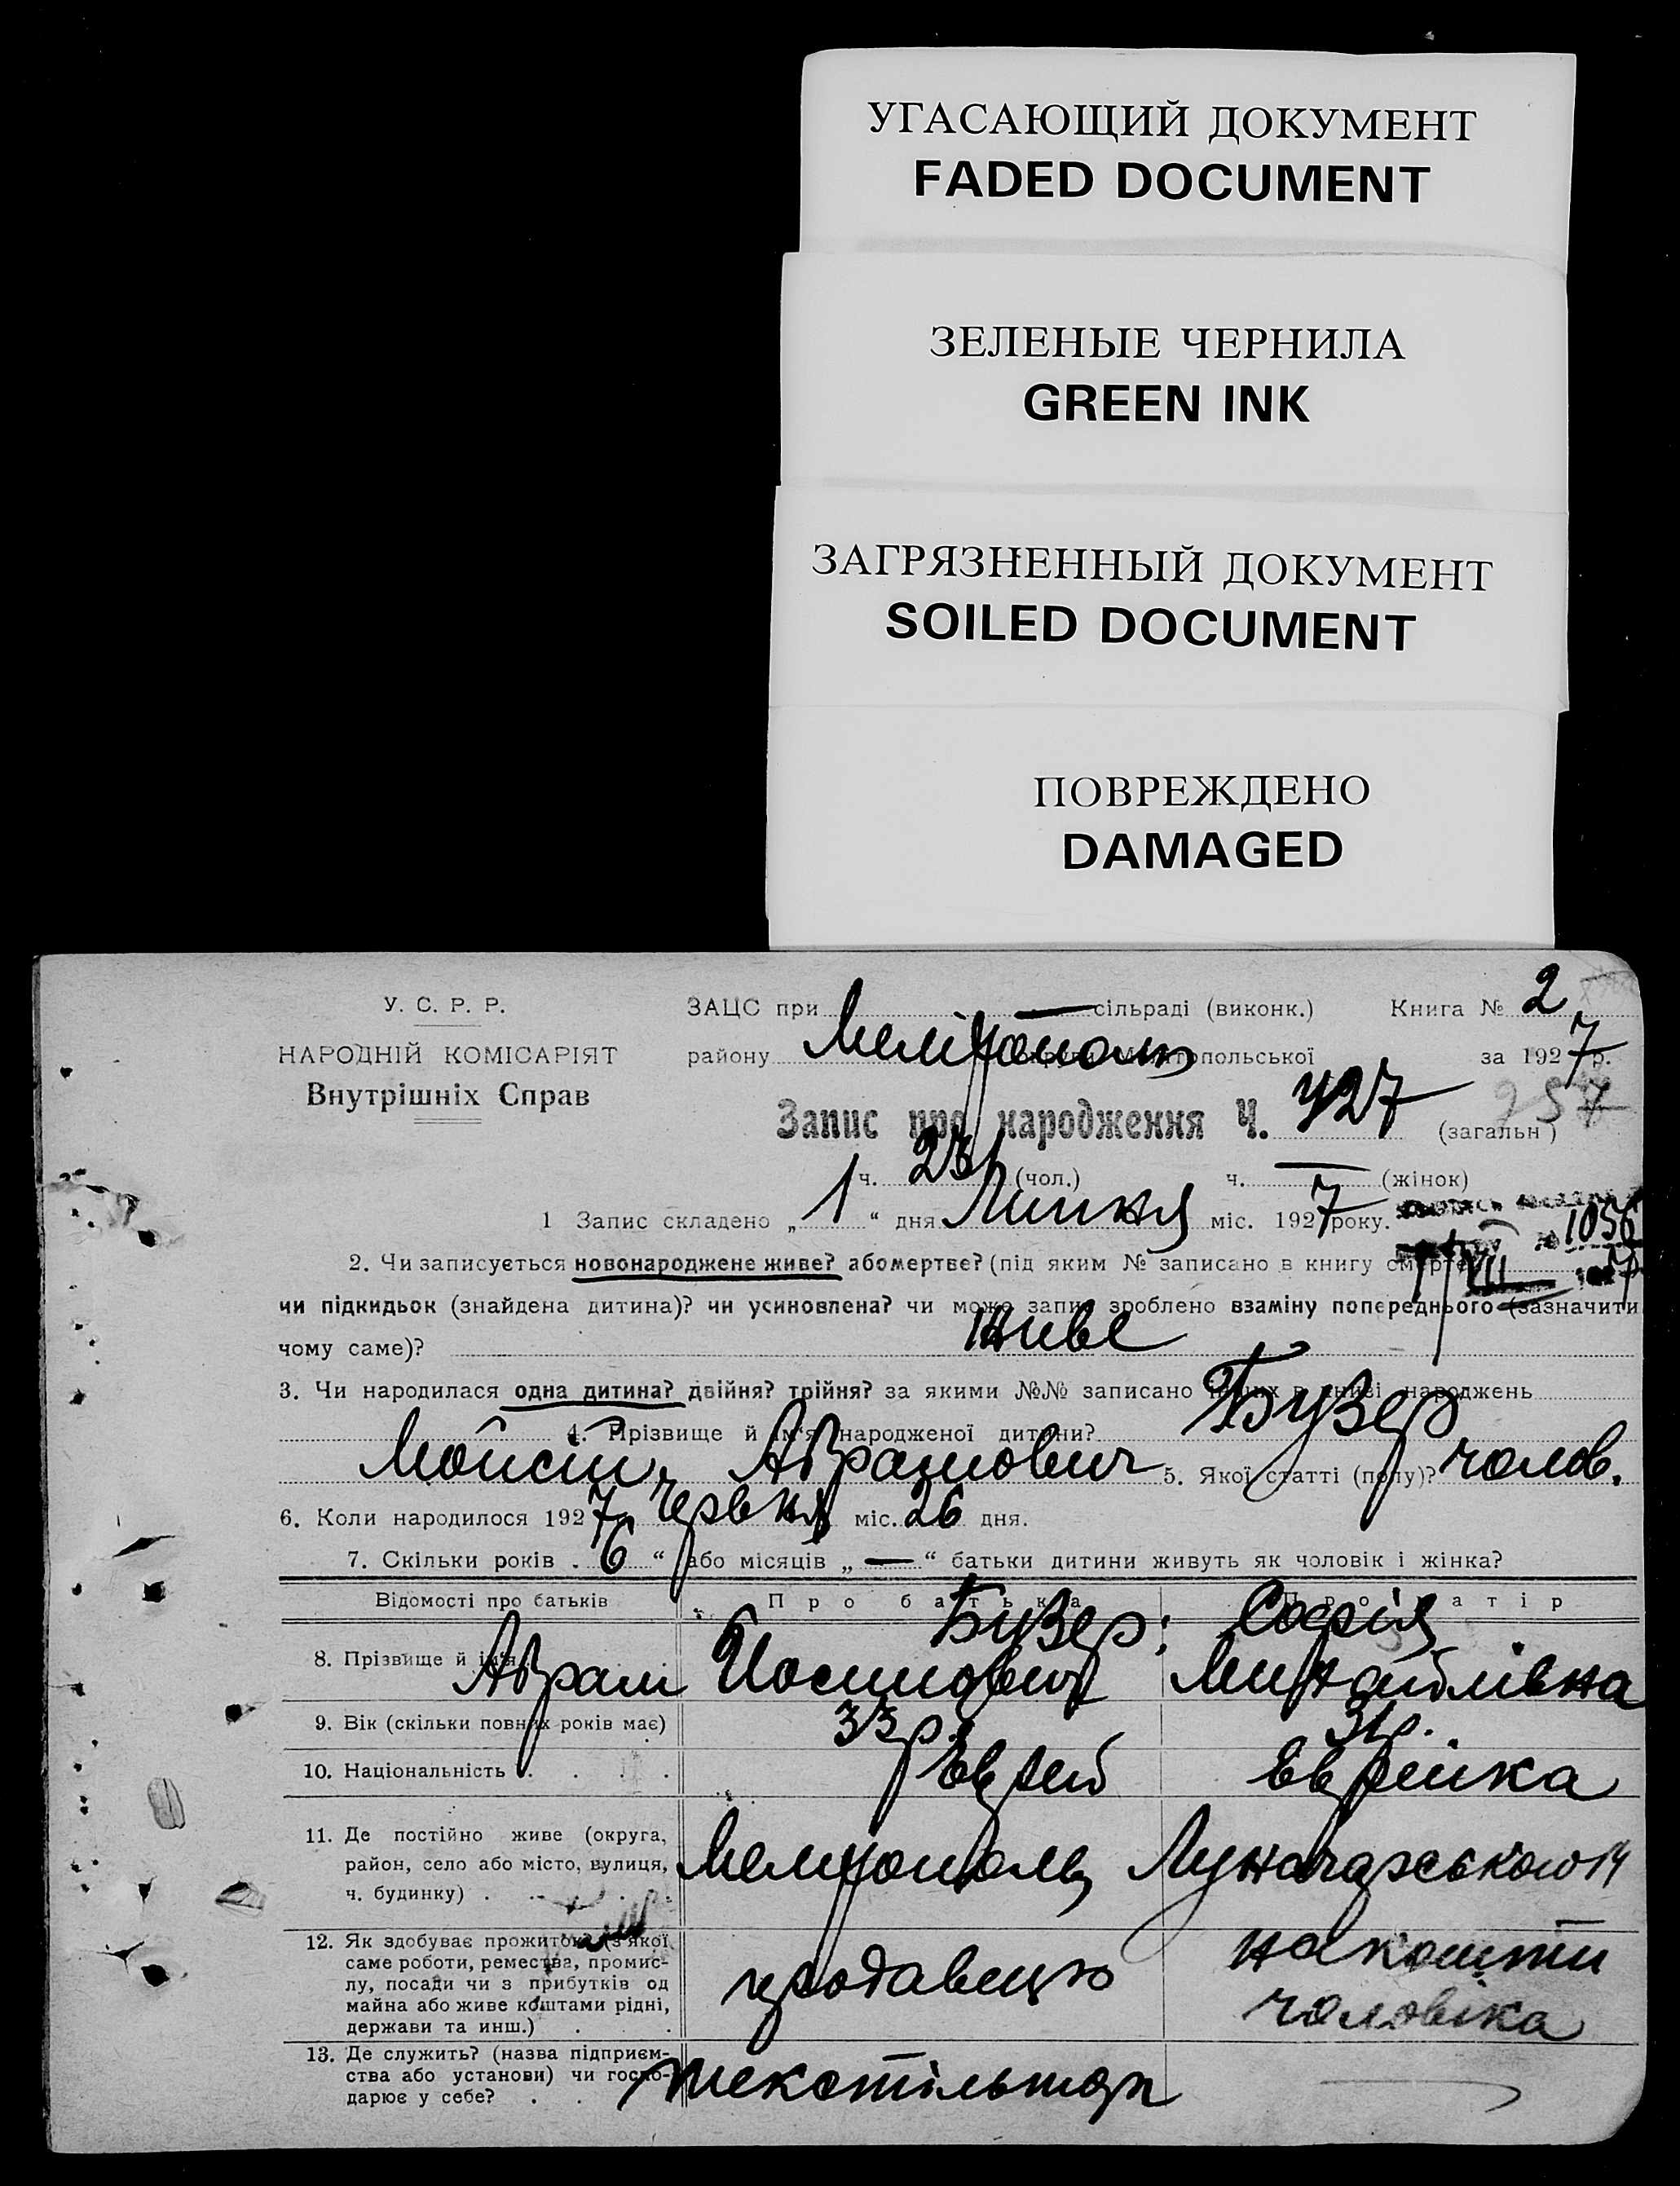 УГАСАЮЩИЙ ДОКУМЕНТ
FADED DOCUMENT
ЗЕЛЕНЫЕ ЧЕРНИЛА
GREEN INK
ЗАГРЯЗНЕННЫЙ ДОКУМЕНТ
SOILED DOCUMENT
ПОВРЕЖДЕНО
DAMAGED
У. С. Р. Р.
НАРОДНІЙ КОМІСАРІЯТ
Внутрішніх Справ
ЗАЦС при сільраді (виконк.) Книга № 2
району Мелітополь округи Мелітопольської за 1927 р.
Запис про народження Ч. 427 (загальн)
ч. (чол.) ч. — (жінок)
1 Запис складено „1“ дня Липня міс. 1927 року.
1056
2. Чи записується новонароджене живе? або мертве? (під яким № записано в книгу смерте
чи підкидьок (знайдена дитина)? чи усиновлена? чи може запис зроблено взаміну попереднього (зазначити
чому саме)? живе
3. Чи народилася одна дитина? двійня? трійня? за якими №№ записано інших в книзі народжень
4. Прізвище й ім'я народженої дитини? Бузер
Мойсій Абрамович 5. Якої статті (полу)? чолов.
6. Коли народилося 1927 червня міс. 26 дня.
7. Скільки років „6“ або місяців „—“ батьки дитини живуть як чоловік і жінка?
Відомості про батьків Про батька Про матір
8. Прізвище й ім'я Бузер; Софія
Абрам Йосипович Михайлівна
9. Вік (скільки повних років має) 33 р. 31 р.
10. Національність . . . . Еврей Еврейка
11. Де постійно живе (округа,
район, село або місто, вулиця,
ч. будинку) . Мелітополь, Луначарського 14
12. Як здобуває прожиток? (з якої
саме роботи, ремества, промис-
лу, посади чи з прибутків од
майна або живе коштами рідні,
держави та инш.) . . продавець на кошти
чоловіка
13. Де служить? (назва підприєм-
ства або установи) чи госпо-
дарює у себе? . . текстільторг